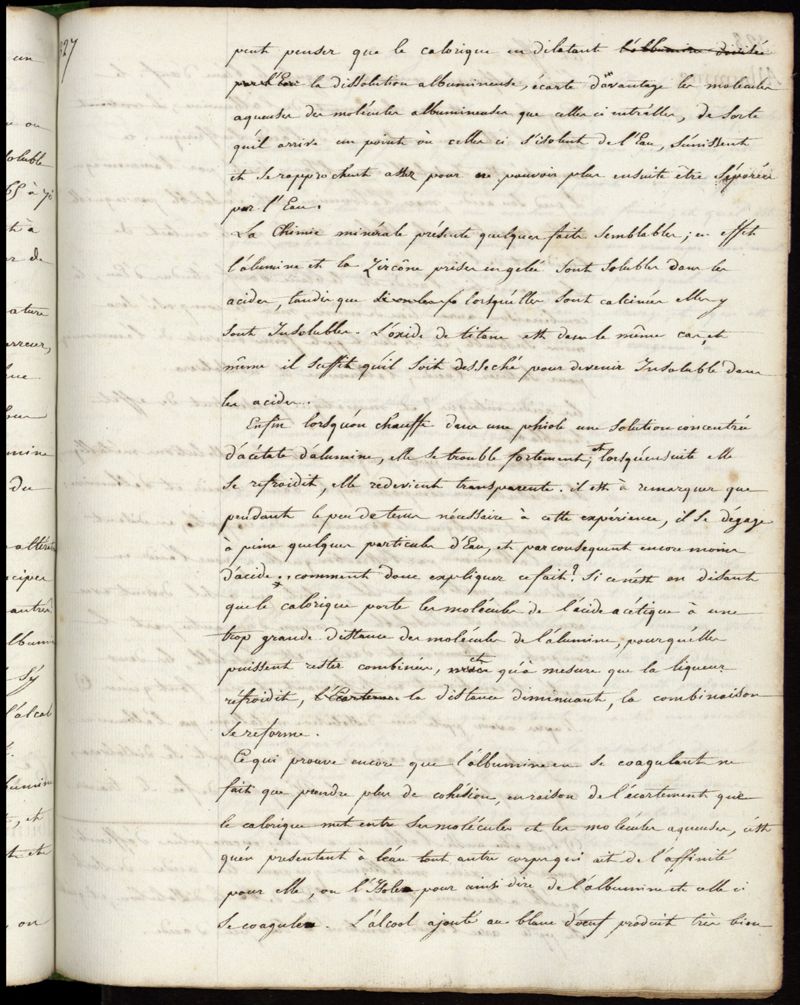 327
peut penser que le calorique en dilatant l'albumine divisée
par l'Eau la dissolution albumineuse, écarte davantage les molecules
aqueuses des molécules albumineuses que celles ci entr'elles, de sorte
qu'il arrive un point où celles ci s'isolent de l'Eau, s'unissent
et se rapprochent assez pour ne pouvoir plus ensuite être séparées
par l'Eau.
La Chimie minérale présente quelques faits semblables; en effet
l'alumine et la Zircône prises en gelée sont solubles dans les
acides, tandis que lorsqu'elles sont calcinées elles y
sont Insolubles. L'oxide de titane est dans le même cas, et
même il suffit qu'il soit desséché pour devenir Insoluble dans
les acides.
Enfin lorsqu'on chauffe dans une phiole une solution concentrée
d'acétate d'alumine, elle se trouble fortement; et lorsqu'ensuite elle
se refroidit, elle redevient transparente. il est à remarquer que
pendant le peu de tems nécessaire à cette expérience, il se dégage
à peine quelques particules d'Eau, et par consequent encore moins
d'acide; comment donc expliquer ce fait? Si ce n'est en disant
que le calorique porte les molécules de l'acide acétique à une
trop grande distance des molécules de l'alumine, pour qu'elles
puissent rester combinées, et qu'à mesure que la liqueur
réfroidit, l'Ecartement la distance diminuant, la combinaison
se reforme.
Ce qui prouve encore que l'albumine en se coagulant ne
fait que prendre plus de cohésion, en raison de l'écartement que
le calorique met entre ses molécules et les molécules aqueuses, c'est
qu'en presentant à l'eau tout autre corps qui ait de l'affinité
pour elle, on l'Isole pour ainsi dire de l'albumine et celle ci
se coagule. L'alcool ajouté au blanc d'œuf produit très bien
un
ou
soluble
65 à 7
et à
de
ature
erreur,
que
mine
du
altérat
ciper
autres
lbumi
s'y
l'alcol
lumine
, et
et
on